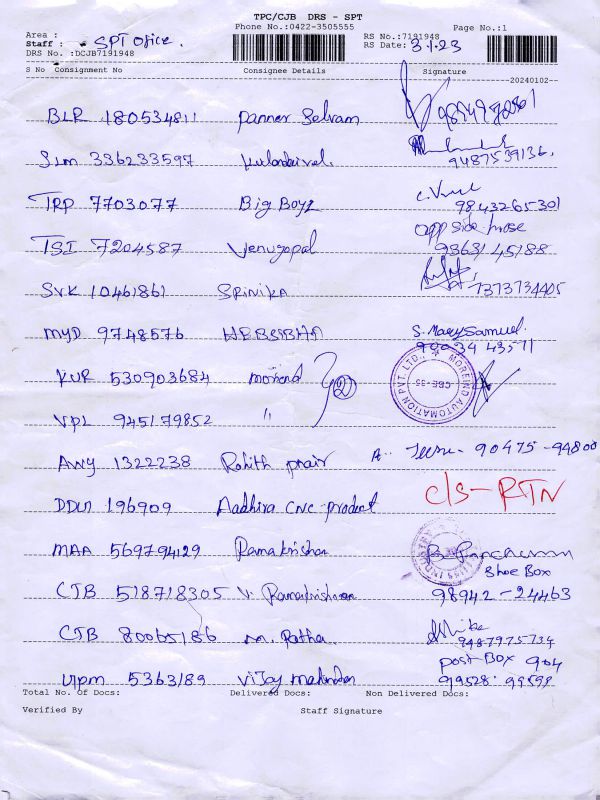 TPC/CJB DRS - SPT
Phone No.:0422-3505555 Page No.:1
Area : RS No.:7191948
Staff : SPT Office. RS Date: 3.1.23
DRS No. :DCJB7191948
S No Consignment No Consignee Details Signature
20240102
BLR 180534811 Panner Selvam
SLM 336233597 Kulandaivel 9487539136.
TRP 7703077 Big Boyz 9843265301
TSI 7204587 Venugopal opp side hose 9363145188
SVK 10461861 SRINIKA 7373734405
MYD 9748576 HEBSIBHA S. Mary Samuel. 90034 43571
KUR 530903684 morend 2 MOREIND AUTOMATION PVT. LTD., CBE-35
VPL 945179852 "
AWY 1322238 Rohith prair A. 90475-94800
DDLN 196909 Aadhira CNC product C/S-RTN
MAA 569794129 Ramakrishan Shoe Box
CJB 518718305 V. Ramakrishnan 98942-24463
CJB 80065186 M. Patha 9487975734
UPM 5363189 Vijay mahindar post-Box 904 99528. 99598
Total No. Of Docs: Delivered Docs: Non Delivered Docs:
Verified By Staff Signature